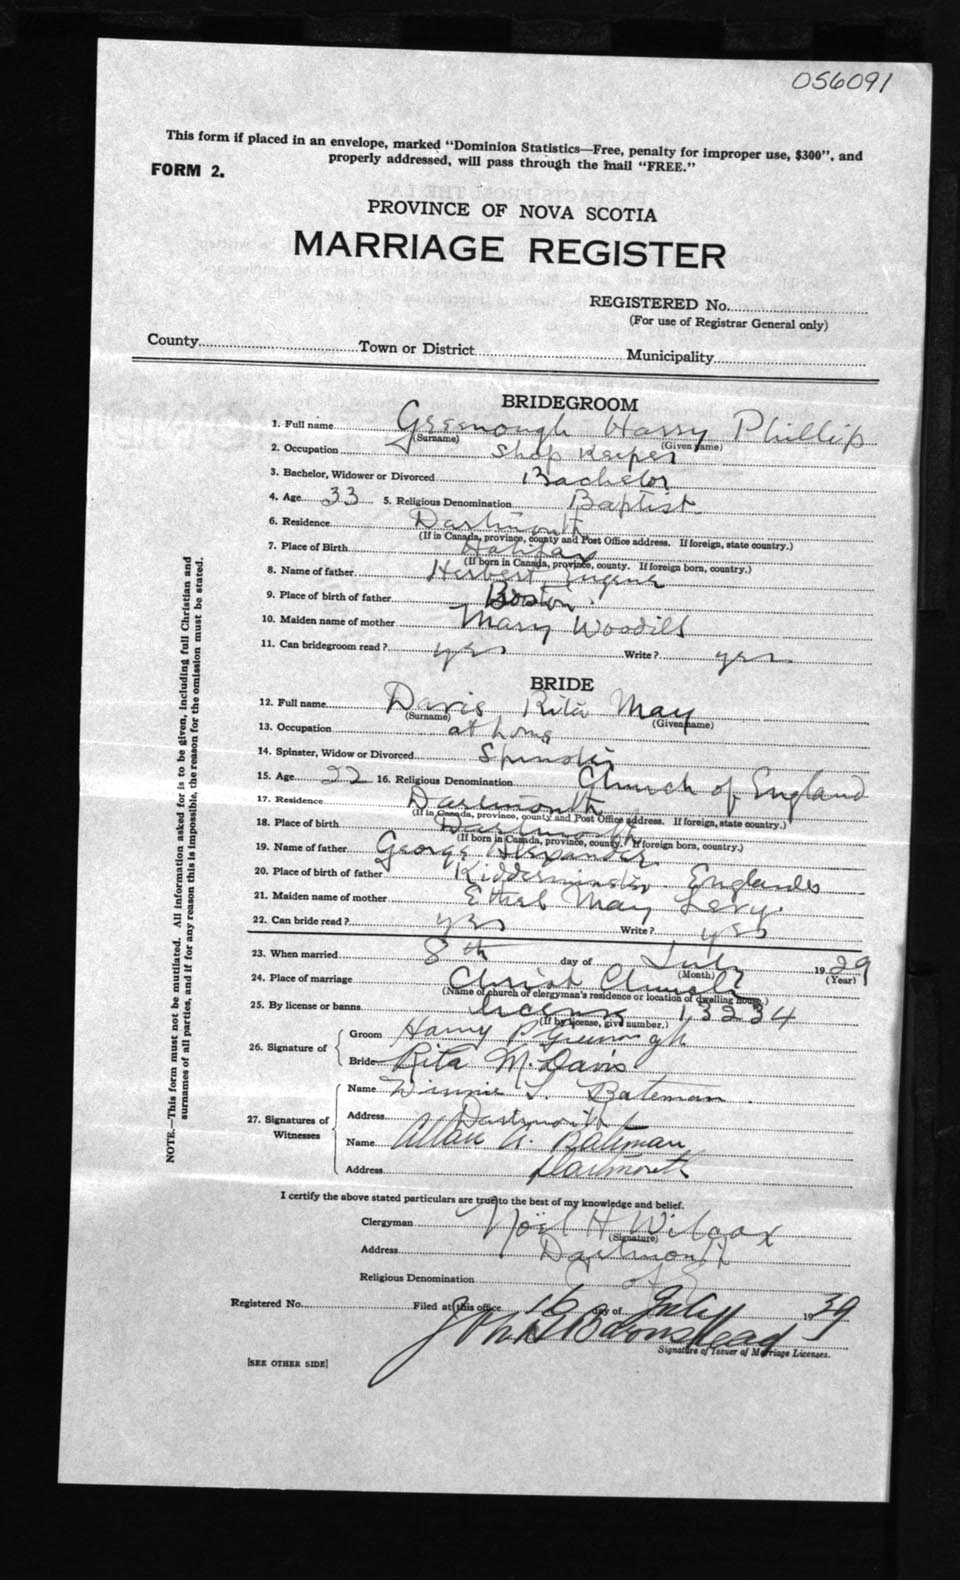 056091
This form if placed in an envelope, marked "Dominion Statistics—Free, penalty for improper use, $300", and
properly addressed, will pass through the mail "FREE."
FORM 2.
PROVINCE OF NOVA SCOTIA
MARRIAGE REGISTER
REGISTERED No.
(For use of Registrar General only)
County Town or District Municipality
BRIDEGROOM
1. Full name Greenough Harry Phillip
(Surname) (Given name)
2. Occupation Shop Keeper
3. Bachelor, Widower or Divorced Bachelor
4. Age 33 5. Religious Denomination Baptist
6. Residence Dartmouth
(If in Canada, province, county and Post Office address. If foreign, state country.)
7. Place of Birth Halifax
(If born in Canada, province, county. If foreign born, country.)
8. Name of father Herbert Eugene
9. Place of birth of father Boston
10. Maiden name of mother Mary Woodill
11. Can bridegroom read? yes Write? yes
BRIDE
12. Full name Davis Rita May
(Surname) (Given name)
13. Occupation at home
14. Spinster, Widow or Divorced Spinster
15. Age 22 16. Religious Denomination Church of England
17. Residence Dartmouth
(If in Canada, province, county and Post Office address. If foreign, state country.)
18. Place of birth Dartmouth
(If born in Canada, province, county. If foreign born, country.)
19. Name of father George Alexander
20. Place of birth of father Kidderminster England
21. Maiden name of mother Ethel May Levy
22. Can bride read? yes Write? yes
23. When married 8th day of July 1929
(Month) (Year)
24. Place of marriage Christ Church
(Name of church or clergyman's residence or location of dwelling house.)
25. By license or banns license 13234
(If by license, give number.)
26. Signature of Groom Harry P Greenough
Bride Rita M. Davis
27. Signatures of Witnesses
Name Winnie L. Bateman
Address Dartmouth
Name Allan A. Bateman
Address Dartmouth
I certify the above stated particulars are true to the best of my knowledge and belief.
Clergyman Noël H Wilcox
(Signature)
Address Dartmouth
Religious Denomination
Registered No. Filed at this office 16 day of July 1939
John
Signature of Issuer of Marriage Licenses.
[SEE OTHER SIDE]
NOTE.—This form must not be mutilated. All information asked for is to be given, including full Christian and
surnames of all parties, and if for any reason this is impossible, the reason for the omission must be stated.